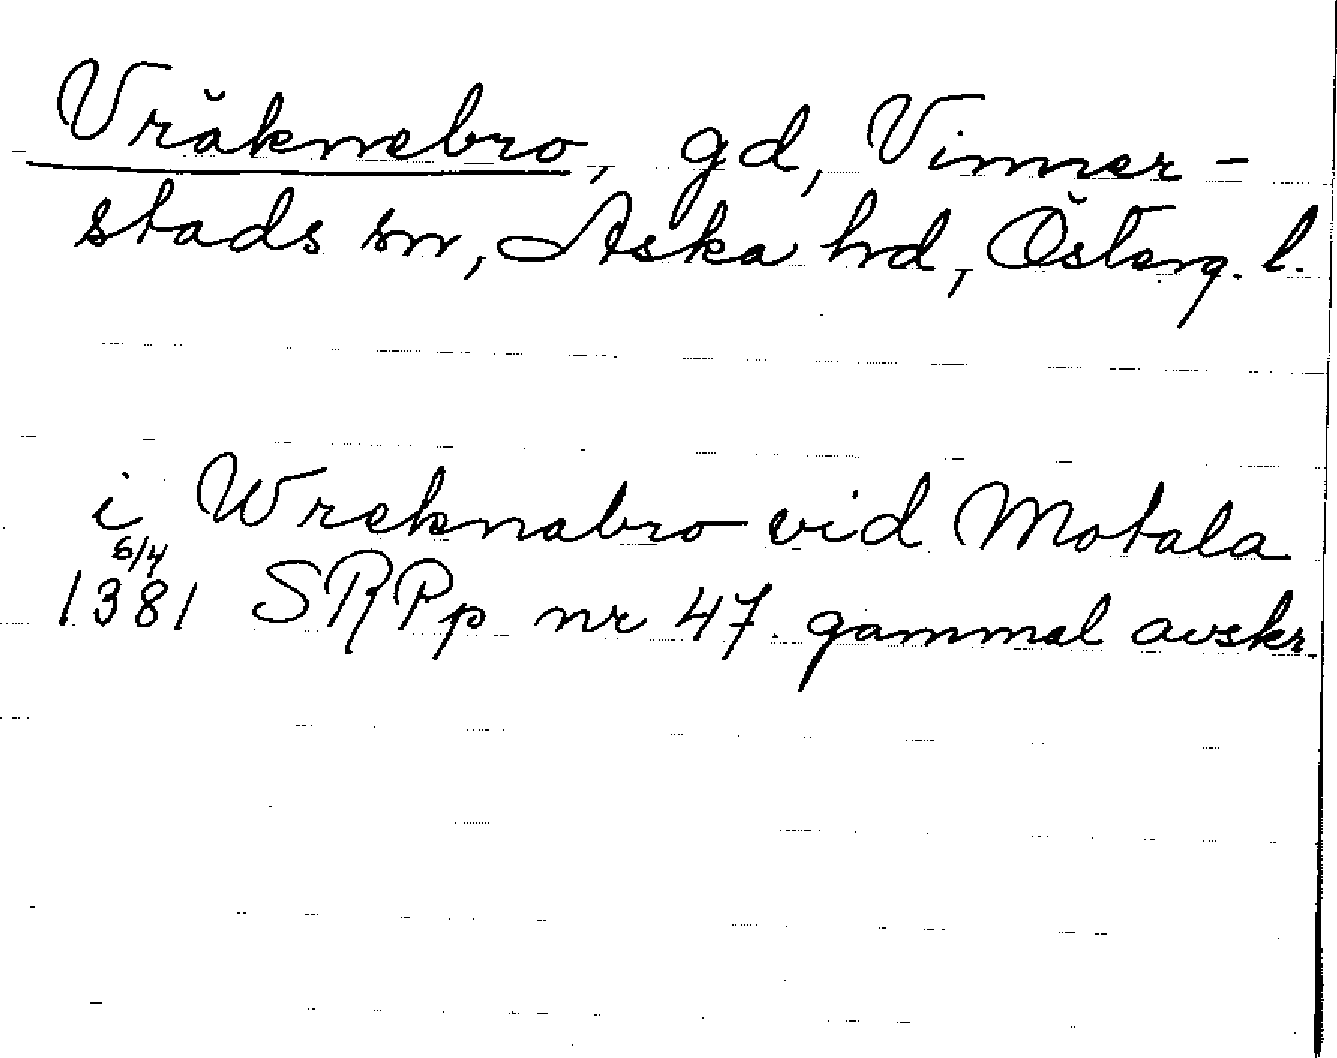 Vräknebro, gd, Vinner-
stads sn, Aska hd, Österg. l.
i Wreknabro vid Motala
6/4
1381 SRPp nr 47 gammal avskr.